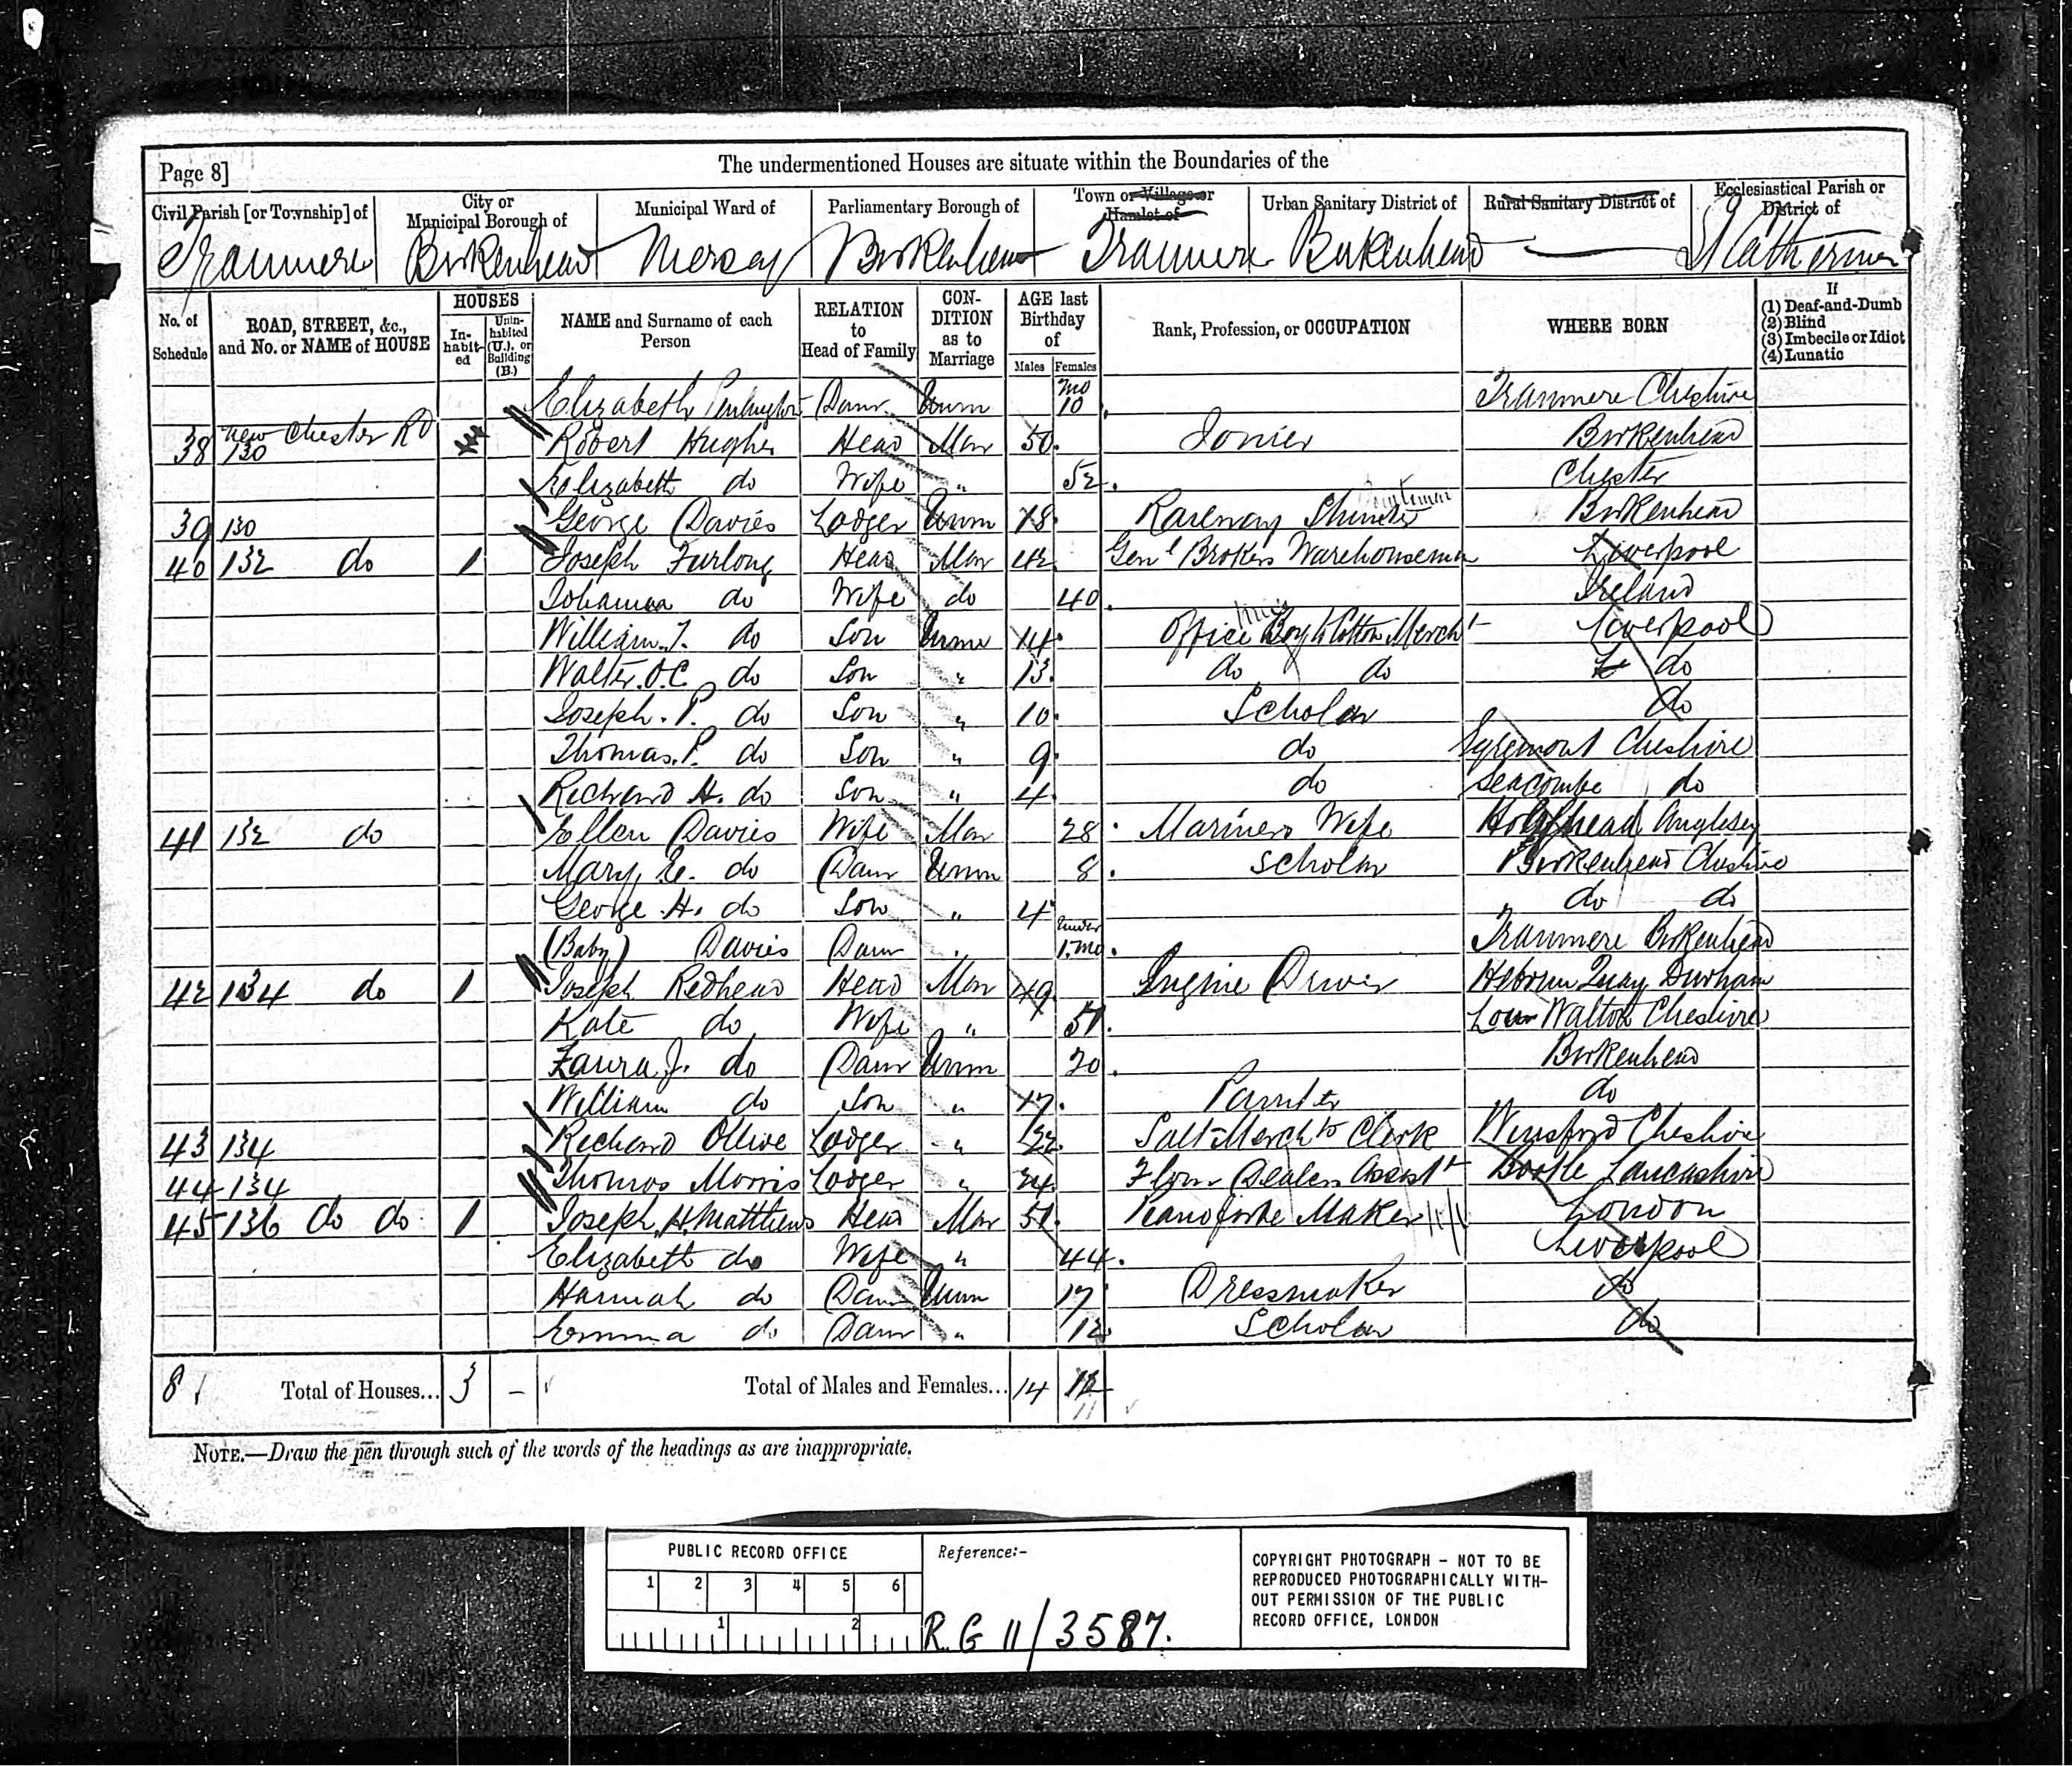 Page 8]
The undermentioned Houses are situate within the Boundaries of the
Civil Parish [or Township] of
City or Municipal Borough of
Municipal Ward of
Parliamentary Borough of
Town or Village or Hamlet of
Urban Sanitary District of
Rural Sanitary District of
Ecclesiastical Parish or District of
Tranmere Birkenhead Mersey Birkenhead Tranmere Birkenhead — St Catherines
No. of Schedule
ROAD, STREET, &c., and No. or NAME of HOUSE
HOUSES
In-habit-ed
Unin-habited (U.), or Building (B.)
NAME and Surname of each Person
RELATION to Head of Family
CON-DITION as to Marriage
AGE last Birthday of
Males Females
Rank, Profession, or OCCUPATION
WHERE BORN
If
(1) Deaf-and-Dumb
(2) Blind
(3) Imbecile or Idiot
(4) Lunatic
Elizabeth Daur Unm mo 10 Tranmere Cheshire
38 New Chester Rd 130 Robert Hughes Head Mar 50 Joiner Birkenhead
Elizabeth do Wife " 52 Chester
39 130 George Davies Lodger Unm 18 Railway Shunter Birkenhead
40 132 do 1 Joseph Furlong Head Mar 42 Genl Brokers Warehouseman Liverpool
Johanna do Wife do 40 Ireland
William T. do Son Unm 14 Office Boy to Cotton Mercht Liverpool
Walter O.C. do Son " 13 do do do
Joseph. P. do Son " 10 Scholar do
Thomas. P. do Son " 9 do Egremont Cheshire
Richard H. do Son " 4 do Seacombe do
41 132 do Ellen Davies Wife Mar 28 Mariners Wife Holyhead Anglesey
Mary E. do Daur Unm 8 Scholar Birkenhead Cheshire
George H. do Son " 4 do do
(Baby) Davies Daur " under 1 mo. Tranmere Birkenhead
42 134 do 1 Joseph Redhead Head Mar 49 Engine Driver Heborun Quay Durham
Kate do Wife " 51 Low Walton Cheshire
Laura J. do Daur Unm 20 Birkenhead
William do Son " 17 Painter do
43 134 Richard Ollive Lodger " 22 Salt Merchts Clerk Winsford Cheshire
44 134 Thomas Morris Lodger " 24 Flour Dealers Assist Bootle Lancashire
45 136 do do 1 Joseph H Matthews Head Mar 51 Pianoforte Maker London
Elizabeth do Wife " 44 Liverpool
Hannah do Daur Unm 17 Dressmaker do
Emma do Daur " 12 Scholar do
8 Total of Houses... 3 – Total of Males and Females... 14 12
11
NOTE.—Draw the pen through such of the words of the headings as are inappropriate.
PUBLIC RECORD OFFICE
1 2 3 4 5 6
1 2
Reference:-
R.G 11/3587.
COPYRIGHT PHOTOGRAPH – NOT TO BE
REPRODUCED PHOTOGRAPHICALLY WITH-
OUT PERMISSION OF THE PUBLIC
RECORD OFFICE, LONDON